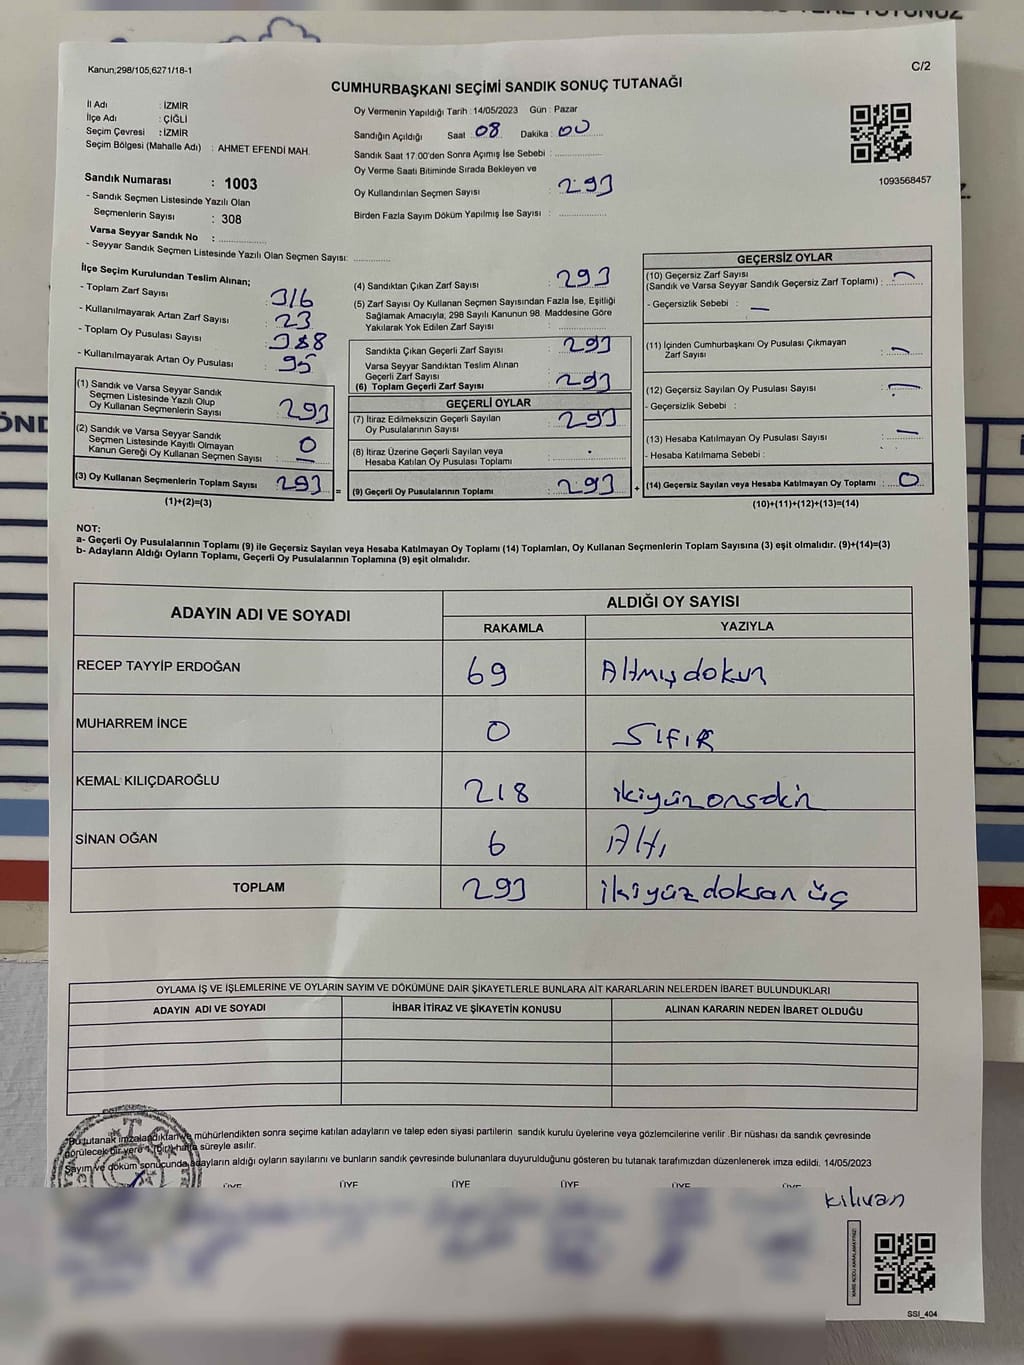 Kanun;298/105;6271/18-1
C/2
CUMHURBAŞKANI SEÇİMİ SANDIK SONUÇ TUTANAĞI
İl Adı : İZMİR
İlçe Adı : ÇİĞLİ
Seçim Çevresi : İZMİR
Seçim Bölgesi (Mahalle Adı) : AHMET EFENDİ MAH.
Sandık Numarası : 1003
- Sandık Seçmen Listesinde Yazılı Olan
Seçmenlerin Sayısı : 308
Varsa Seyyar Sandık No : ................
- Seyyar Sandık Seçmen Listesinde Yazılı Olan Seçmen Sayısı: ............
Oy Vermenin Yapıldığı Tarih : 14/05/2023 Gün : Pazar
Sandığın Açıldığı Saat : 08 Dakika : 00
Sandık Saat 17:00'den Sonra Açımış İse Sebebi : ................
Oy Verme Saati Bitiminde Sırada Bekleyen ve
Oy Kullandırılan Seçmen Sayısı : 293
Birden Fazla Sayım Döküm Yapılmış İse Sayısı : ................
1093568457
İlçe Seçim Kurulundan Teslim Alınan;
- Toplam Zarf Sayısı : 316
- Kullanılmayarak Artan Zarf Sayısı : 23
- Toplam Oy Pusulası Sayısı : 388
- Kullanılmayarak Artan Oy Pusulası : 95
(1) Sandık ve Varsa Seyyar Sandık
Seçmen Listesinde Yazılı Olup
Oy Kullanan Seçmenlerin Sayısı : 293
(2) Sandık ve Varsa Seyyar Sandık
Seçmen Listesinde Kayıtlı Olmayan
Kanun Gereği Oy Kullanan Seçmen Sayısı : 0
(3) Oy Kullanan Seçmenlerin Toplam Sayısı : 293 =
(1)+(2)=(3)
(4) Sandıktan Çıkan Zarf Sayısı : 293
(5) Zarf Sayısı Oy Kullanan Seçmen Sayısından Fazla İse, Eşitliği
Sağlamak Amacıyla, 298 Sayılı Kanunun 98. Maddesine Göre
Yakılarak Yok Edilen Zarf Sayısı : ................
Sandıkta Çıkan Geçerli Zarf Sayısı : 293
Varsa Seyyar Sandıktan Teslim Alınan
Geçerli Zarf Sayısı
(6) Toplam Geçerli Zarf Sayısı : 293
GEÇERLİ OYLAR
(7) İtiraz Edilmeksizin Geçerli Sayılan
Oy Pusulalarının Sayısı : 293
(8) İtiraz Üzerine Geçerli Sayılan veya
Hesaba Katılan Oy Pusulası Toplamı : .
(9) Geçerli Oy Pusulalarının Toplamı : 293 +
GEÇERSİZ OYLAR
(10) Geçersiz Zarf Sayısı
(Sandık ve Varsa Seyyar Sandık Geçersiz Zarf Toplamı) : —
- Geçersizlik Sebebi : —
(11) İçinden Cumhurbaşkanı Oy Pusulası Çıkmayan
Zarf Sayısı : —
(12) Geçersiz Sayılan Oy Pusulası Sayısı : —
- Geçersizlik Sebebi :
(13) Hesaba Katılmayan Oy Pusulası Sayısı : —
- Hesaba Katılmama Sebebi :
(14) Geçersiz Sayılan veya Hesaba Katılmayan Oy Toplamı : 0
(10)+(11)+(12)+(13)=(14)
NOT:
a- Geçerli Oy Pusulalarının Toplamı (9) ile Geçersiz Sayılan veya Hesaba Katılmayan Oy Toplamı (14) Toplamları, Oy Kullanan Seçmenlerin Toplam Sayısına (3) eşit olmalıdır. (9)+(14)=(3)
b- Adayların Aldığı Oyların Toplamı, Geçerli Oy Pusulalarının Toplamına (9) eşit olmalıdır.
ADAYIN ADI VE SOYADI
ALDIĞI OY SAYISI
RAKAMLA YAZIYLA
RECEP TAYYİP ERDOĞAN 69 Altmışdokuz
MUHARREM İNCE 0 SIFIR
KEMAL KILIÇDAROĞLU 218 ikiyüzonsekiz
SİNAN OĞAN 6 Altı
TOPLAM 293 ikiyüz doksan üç
OYLAMA İŞ VE İŞLEMLERİNE VE OYLARIN SAYIM VE DÖKÜMÜNE DAİR ŞİKAYETLERLE BUNLARA AİT KARARLARIN NELERDEN İBARET BULUNDUKLARI
ADAYIN ADI VE SOYADI İHBAR İTİRAZ VE ŞİKAYETİN KONUSU ALINAN KARARIN NEDEN İBARET OLDUĞU
Bu tutanak imzalandıktan ve mühürlendikten sonra seçime katılan adayların ve talep eden siyasi partilerin sandık kurulu üyelerine veya gözlemcilerine verilir .Bir nüshası da sandık çevresinde
görülecek bir yere 1 (bir) hafta süreyle asılır.
Sayım ve döküm sonucunda adayların aldığı oyların sayılarını ve bunların sandık çevresinde bulunanlara duyurulduğunu gösteren bu tutanak tarafımızdan düzenlenerek imza edildi. 14/05/2023
ÜYE ÜYE ÜYE ÜYE ÜYE ÜYE
SSI_404